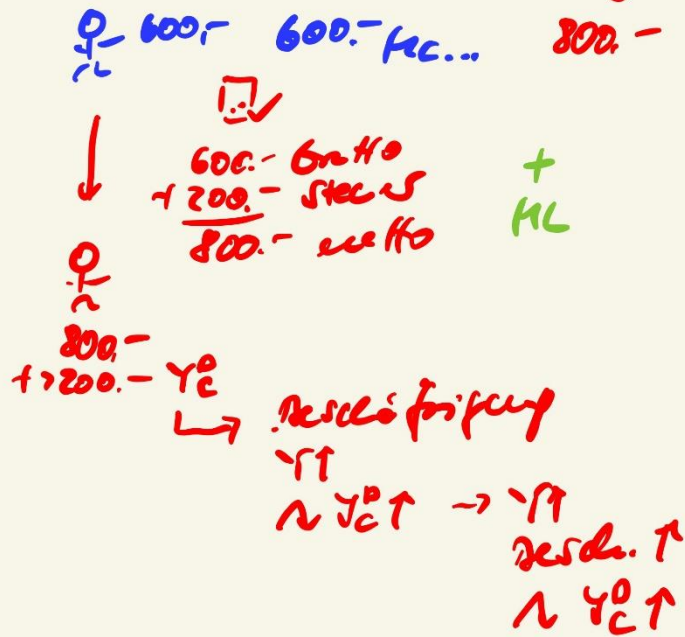 600,- 600.- HC... 800.-
600.- Brutto
+ 200.- Steuer
800.- netto
+
HC
800,-
+ >200.- Y_C^D
↳ Beschäftigung
Y↑
Y_C^D ↑ → Y↑
Besch. ↑
Y_C^D ↑